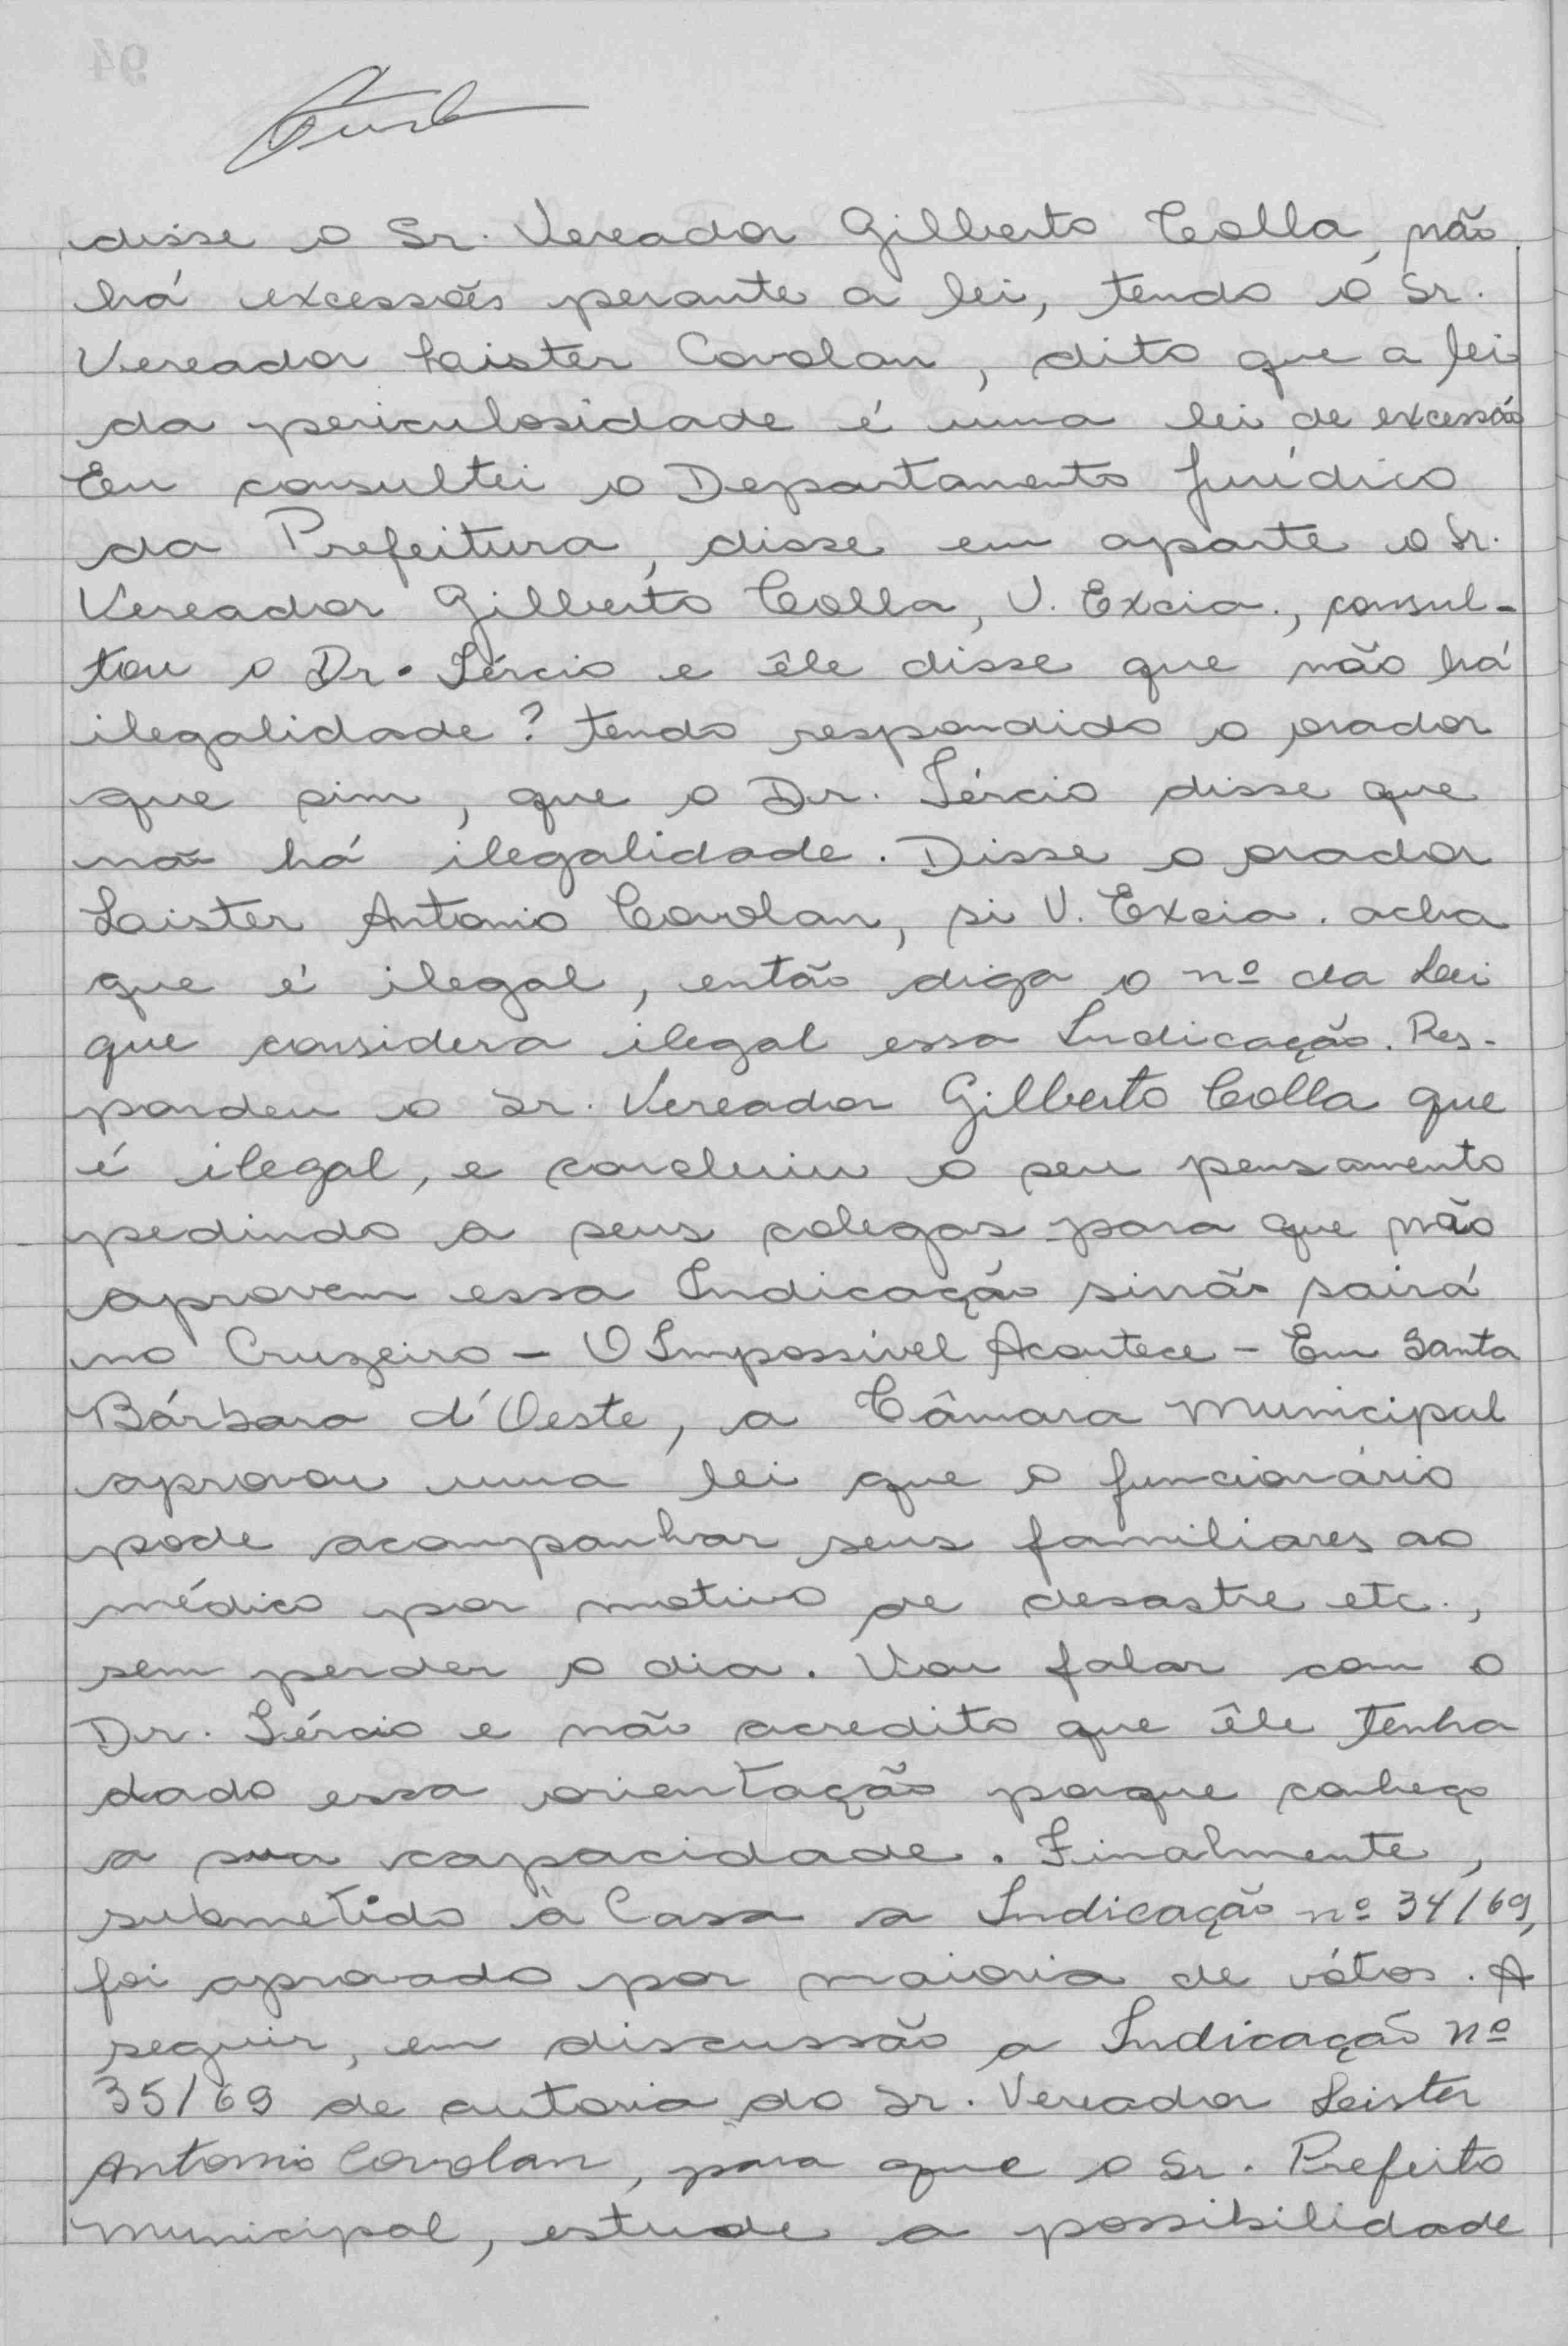 disse o Sr. Vereador Gilberto Colla, não
há excessões perante a lei, tendo o Sr.
Vereador Laister Covolan, dito que a lei
da periculosidade é uma lei de excessão
Eu consultei o Departamento Jurídico
da Prefeitura, disse em aparte o Sr.
Vereador Gilberto Colla, V. Excia., consul-
tou o Dr. Tércio e êle disse que não há
ilegalidade? tendo respondido o orador
que sim, que o Dr. Tércio disse que
não há ilegalidade. Disse o orador
Laister Antonio Covolan, si V. Excia. acha
que é ilegal, então diga o nº da Lei
que considera ilegal essa Indicação. Res-
pondeu o Sr. Vereador Gilberto Colla que
é ilegal, e concluiu o seu pensamento
pedindo a seus colegas para que não
aprovem essa Indicação sinão sairá
no Cruzeiro - O Impossível Acontece - Em Santa
Bárbara d'Oeste, a Câmara Municipal
aprovou uma lei que o funcionário
pode acompanhar seus familiares ao
médico por motivo de desastre etc.,
sem perder o dia. Vou falar com o
Dr. Tércio e não acredito que êle tenha
dado essa orientação porque conheço
a sua capacidade. Finalmente,
submetido à Casa a Indicação nº 34/69,
foi aprovado por maioria de vótos. A
seguir, em discussão a Indicação nº
35/69 de autoria do Sr. Vereador Leister
Antonio Covolan, para que o Sr. Prefeito
Municipal, estude a possibilidade